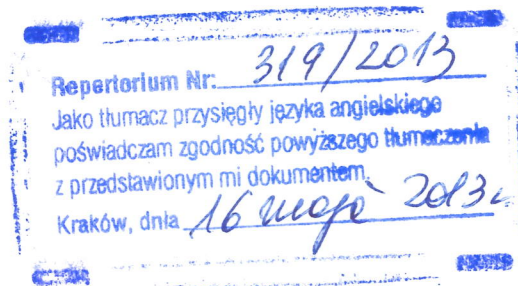 Repertorium Nr: 319/2013
Jako tłumacz przysięgły języka angielskiego
poświadczam zgodność powyższego tłumaczenia
z przedstawionym mi dokumentem.
Kraków, dnia 16 maja 2013r.